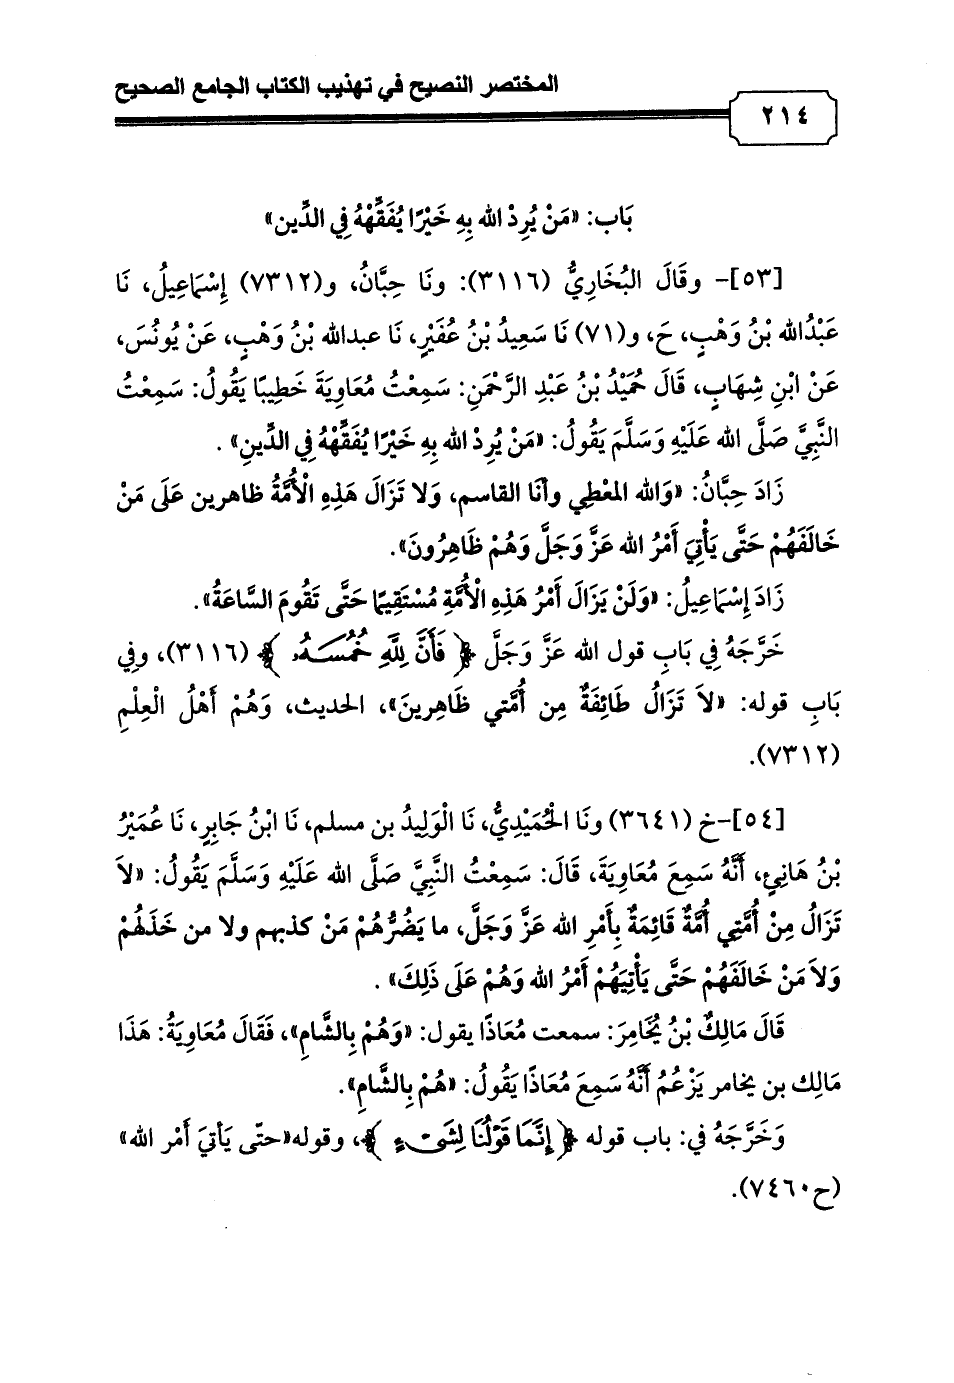 المختصر النصيح في تهذيب الكتاب الجامع الصحيح
٢١٤
بَاب: «مَنْ يُرِدْ الله بِهِ خَيْرًا يُفَقِّهْهُ فِي الدِّين»
[٥٣]- وقَالَ البُخَارِيُّ (٣١١٦): ونَا حِبَّانُ، و(٧٣١٢) إِسْمَاعِيلُ، نَا
عَبْدُالله بْنُ وَهْبٍ، حَ، و(٧١) نَا سَعِيدُ بْنُ عُفَيْرٍ، نَا عبدالله بْنُ وَهْبٍ، عَنْ يُونُسَ،
عَنْ ابْنِ شِهَابٍ، قَالَ حُمَيْدُ بْنُ عَبْدِ الرَّحْمَنِ: سَمِعْتُ مُعَاوِيَةَ خَطِيبًا يَقُولُ: سَمِعْتُ
النَّبِيَّ صَلَّى الله عَلَيْهِ وَسَلَّمَ يَقُولُ: «مَنْ يُرِدْ الله بِهِ خَيْرًا يُفَقِّهْهُ فِي الدِّينِ» .
زَادَ حِبَّانُ: «وَالله المُعْطِي وأنَا القاسم، وَلا تزَالَ هَذِهِ الْأُمَّةُ ظاهرين عَلَى مَنْ
خَالَفَهُمْ حَتَّى يَأْتِيَ أَمْرُ الله عَزَّ وَجَلَّ وَهُمْ ظَاهِرُونَ».
زَادَ إِسْمَاعِيلُ: «وَلَنْ يَزَالَ أَمْرُ هَذِهِ الْأُمَّةِ مُسْتَقِيمًا حَتَّى تَقُومَ السَّاعَةُ».
خَرَّجَهُ فِي بَابِ قول الله عَزَّ وَجَلَّ ﴿ فَأَنَّ لِلَّهِ خُمُسَهُۥ ﴾ (٣١١٦)، وفِي
بَابِ قوله: «لاَ تَزَالُ طَائِفَةٌ مِن أُمَّتي ظَاهِرينَ»، الحديث، وَهُمْ أَهْلُ الْعِلْمِ
(٧٣١٢).
[٥٤]-خ (٣٦٤١) ونَا الْحُمَيْدِيُّ، نَا الْوَلِيدُ بن مسلم، نَا ابْنُ جَابِرٍ، نَا عُمَيْرُ
بْنُ هَانِئٍ، أَنَّهُ سَمِعَ مُعَاوِيَةَ، قَالَ: سَمِعْتُ النَّبِيَّ صَلَّى الله عَلَيْهِ وَسَلَّمَ يَقُولُ: «لاَ
تَزَالُ مِنْ أُمَّتِي أُمَّةٌ قَائِمَةٌ بِأَمْرِ الله عَزَّ وَجَلَّ، ما يَضُرُّهُمْ مَنْ كذبهم ولا من خَذَلَهُمْ
وَلاَ مَنْ خَالَفَهُمْ حَتَّى يَأْتِيَهُمْ أَمْرُ الله وَهُمْ عَلَى ذَلِكَ» .
قَالَ مَالِكُ بْنُ يُخَامِرَ: سمعت مُعَاذًا يقول: «وَهُمْ بِالشَّامِ»، فَقَالَ مُعَاوِيَةُ: هَذَا
مَالِك بن يخامر يَزْعُمُ أَنَّهُ سَمِعَ مُعَاذًا يَقُولُ: «هُمْ بِالشَّامِ».
وَخَرَّجَهُ في: باب قوله ﴿ إِنَّمَا قَوْلُنَا لِشَىْءٍ ﴾، وقوله«حتّى يَأتيَ أَمْر الله»
(ح٧٤٦٠).